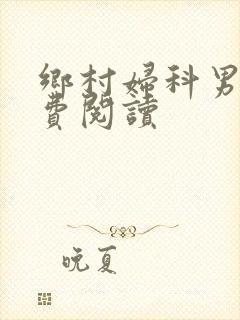 鄉村婦科男
費閱讀
晚夏